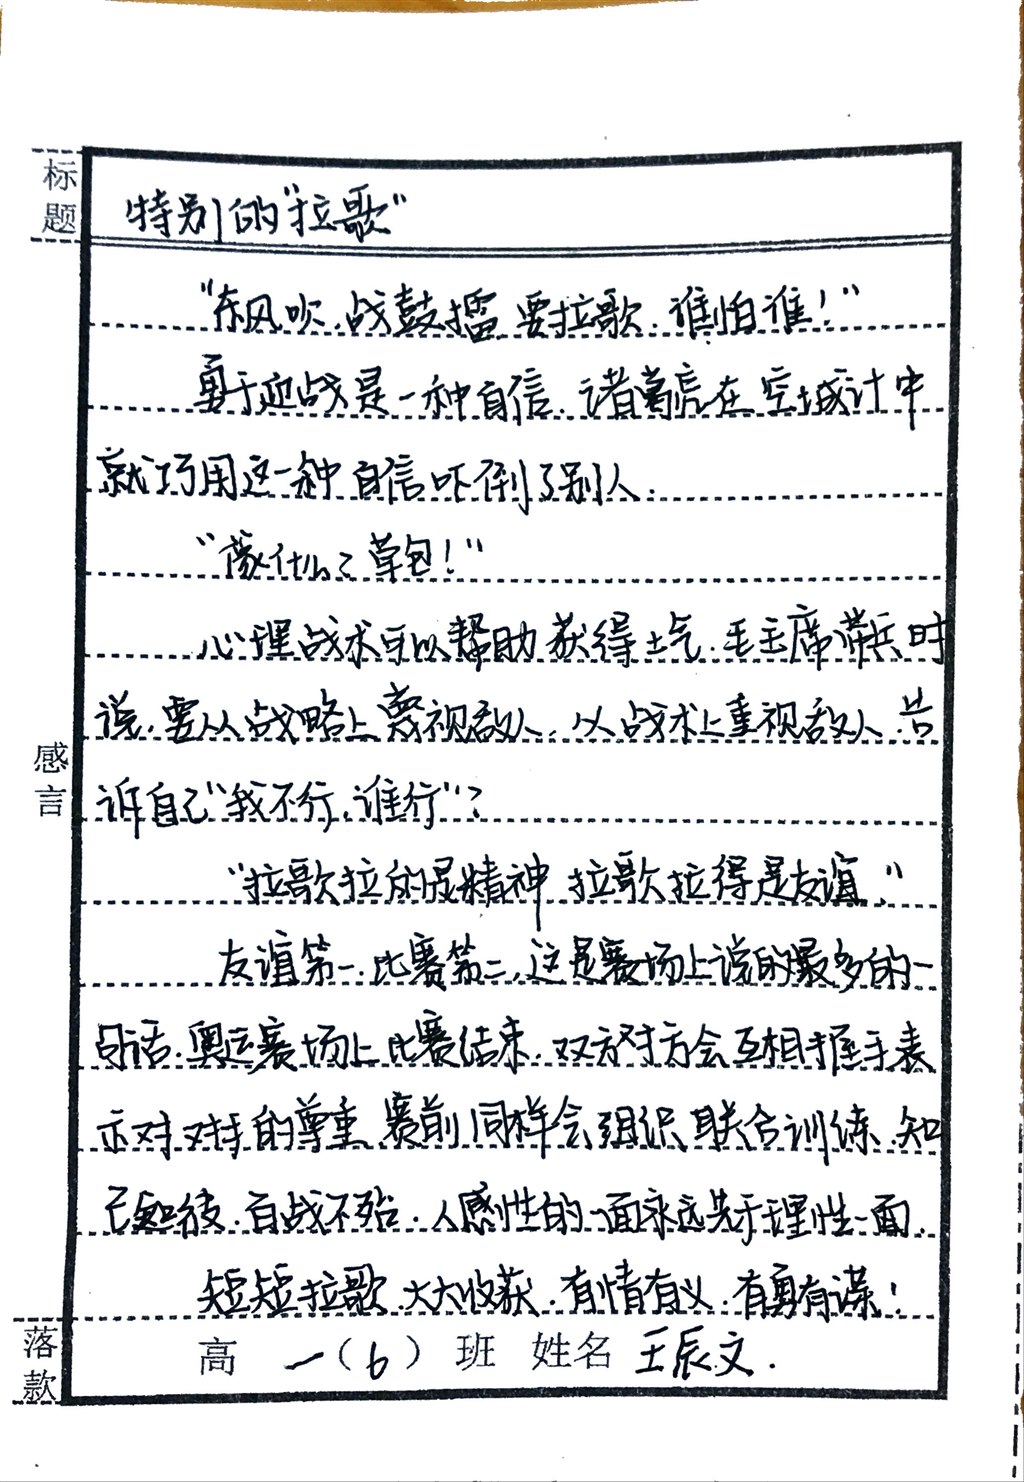 标题
特别的"拉歌"
"东风吹,战鼓擂,要拉歌,谁怕谁!"
勇于迎战是一种自信,诸葛亮在空城计中
就巧用这一种自信吓倒了别人.
"豪什么?草包!"
心理战术可以帮助获得士气.毛主席带兵时
说,要从战略上蔑视敌人,从战术上重视敌人.告
诉自己"我不行,谁行"?
感言
"拉歌拉的是精神,拉歌拉得是友谊."
友谊第一,比赛第二,这是赛场上说的最多的一
句话.奥运赛场上比赛结束,双方对方会互相握手表
示对对持的尊重,赛前同样会组织联合训练,知
己知彼,百战不殆.人感性的一面永远先于理性一面.
短短拉歌,大大收获.有情有义,有勇有谋!
落款
高一(6)班 姓名 王辰文.